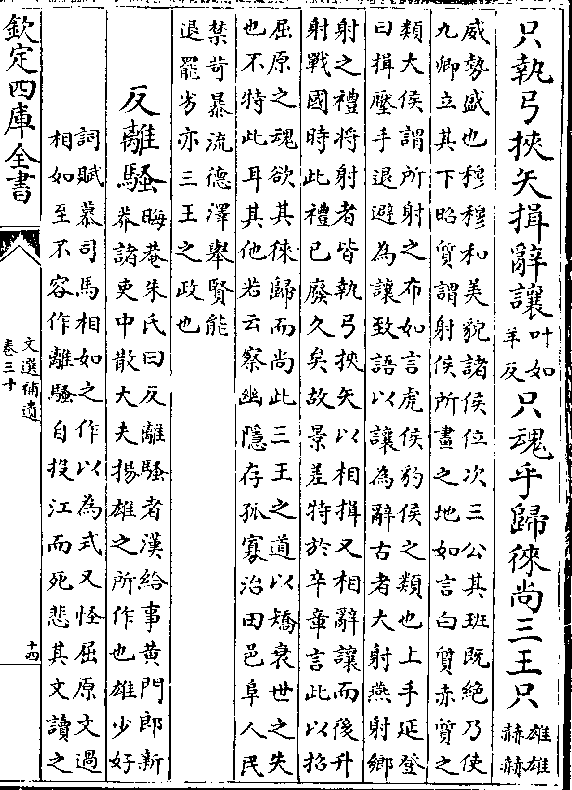 只執弓挾矢揖辭讓叶如羊反只魂乎歸徠尚三王只雄雄赫赫
威勢盛也穆穆和美貌諸侯位次三公其班既絶乃使
九卿立其下昭質謂射侯所畫之地如言白質赤質之
類大侯謂所射之布如言虎侯豹侯之類也上手延登
曰揖壓手退避為讓致語以讓為辭古者大射燕射鄉
射之禮將射者皆執弓挾矢以相揖又相辭讓而後升
射戰國時此禮已廢久矣故景差特於卒章言此以招
屈原之魂欲其徠歸而尚此三王之道以矯衰世之失
也不特此耳其他若云察幽隱存孤寡治田邑阜人民
禁苛暴流德澤舉賢能
退罷劣亦三王之政也
反離騷晦菴朱氏曰反離騷者漢給事黄門郎新
莽諸吏中散大夫揚雄之所作也雄少好
詞賦慕司馬相如之作以為式又怪屈原文過
相如至不容作離騷自投江而死悲其文讀之
欽定四庫全書
文選補遺
卷三十
十四